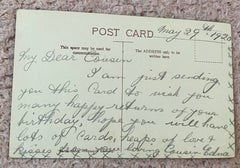 May 29th 1920
POST CARD
This space may be used for communication
The ADDRESS only to be written here
My Dear Cousin
I am just sending
you this Card to wish you
many happy returns of your
birthday, hope you will have
lots of Cards, heaps of love &
Kisses from your loving Cousin Edna